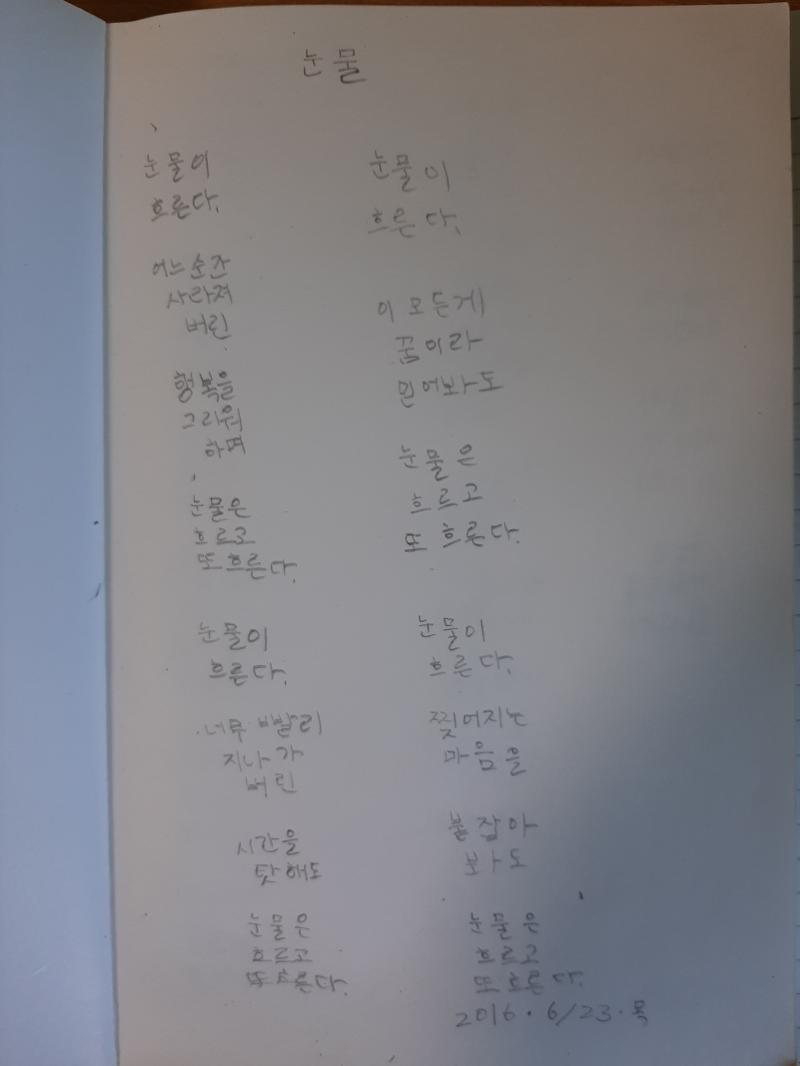 눈물
눈물이
흐른다.
어느순간
사라져
버린
행복을
그리워
하며
눈물은
흐르고
또 흐른다.
눈물이
흐른다.
너무 빨리
지나가
버린
시간을
탓해도
눈물은
흐르고
또 흐른다.
눈물이
흐른다.
이 모든게
꿈이라
믿어봐도
눈물은
흐르고
또 흐른다.
눈물이
흐른다.
찢어지는
마음을
붙잡아
봐도
눈물은
흐르고
또 흐른다.
2016. 6/23.목